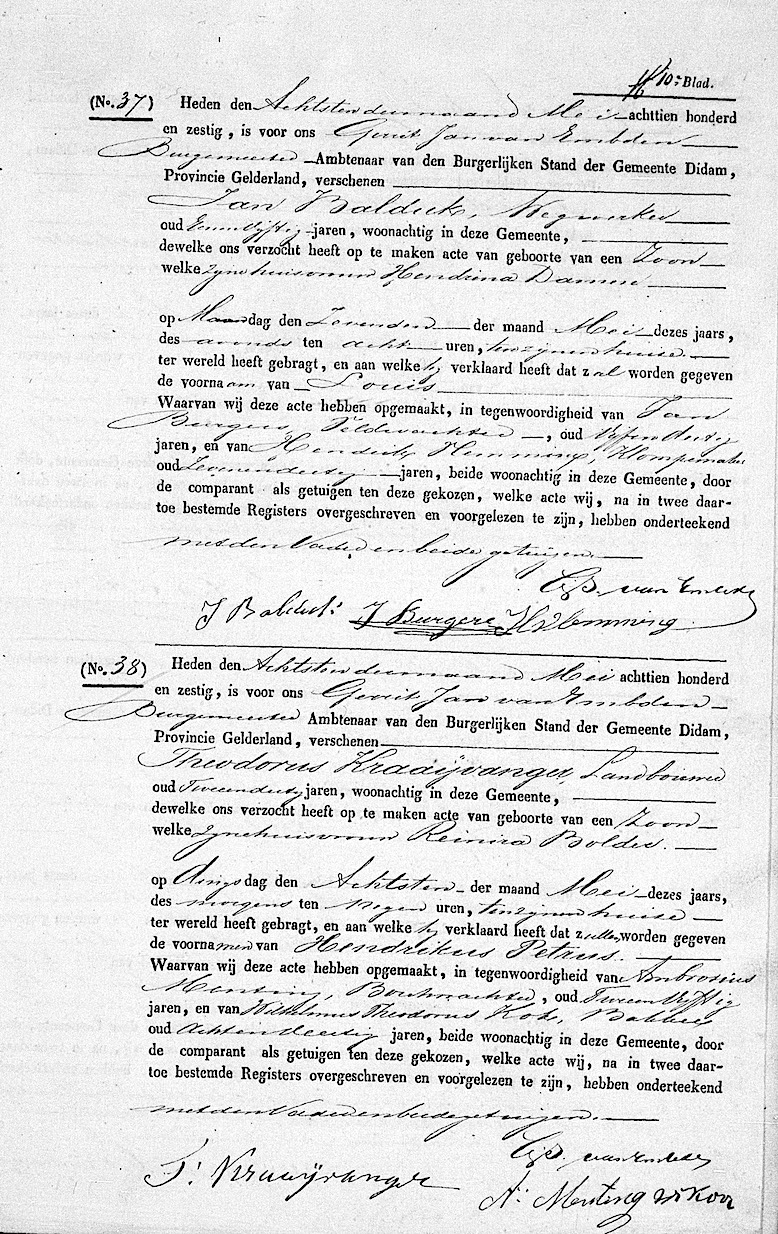 10e Blad.
(No. 37) Heden den Achtsten der maand Mei achttien honderd
en zestig, is voor ons Gerrit Jan van Embden
Burgemeester Ambtenaar van den Burgerlijken Stand der Gemeente Didam,
Provincie Gelderland, verschenen
Jan Balduk, Wegwerker
oud Eenenvijftig jaren, woonachtig in deze Gemeente,
dewelke ons verzocht heeft op te maken acte van geboorte van een Zoon
welke zijne huisvrouw Hendrina Damen
op Maandag den Zevenden der maand Mei dezes jaars,
des avonds ten acht uren, ten zijnen huize
ter wereld heeft gebragt, en aan welke hij verklaard heeft dat zal worden gegeven
de voornaam van Louis
Waarvan wij deze acte hebben opgemaakt, in tegenwoordigheid van Jan
Burgers, Veldwachter, oud
jaren, en van Hendrik Hemming, Klompenmaker
oud Zevenendertig jaren, beide woonachtig in deze Gemeente, door
de comparant als getuigen ten deze gekozen, welke acte wij, na in twee daar-
toe bestemde Registers overgeschreven en voorgelezen te zijn, hebben onderteekend
met den Vader en beide getuigen.
van Embden
J Balduk J Burgers H Hemming
(No. 38) Heden den Achtsten der maand Mei achttien honderd
en zestig, is voor ons Gerrit Jan van Embden
Burgemeester Ambtenaar van den Burgerlijken Stand der Gemeente Didam,
Provincie Gelderland, verschenen
Theodorus Kraaijvanger, Landbouwer
oud Tweeendertig jaren, woonachtig in deze Gemeente,
dewelke ons verzocht heeft op te maken acte van geboorte van een Zoon
welke zijne huisvrouw Reinira Bolder
op Dingsdag den Achtsten der maand Mei dezes jaars,
des morgens ten negen uren, ten zijnen huize
ter wereld heeft gebragt, en aan welke hij verklaard heeft dat zullen worden gegeven
de voornamen van Hendrikus Petrus.
Waarvan wij deze acte hebben opgemaakt, in tegenwoordigheid van Ambrosius
Menting, Boschwachter, oud Tweeenvijftig
jaren, en van Wilhelmus Theodorus Kok, Bakker
oud Achtendertig jaren, beide woonachtig in deze Gemeente, door
de comparant als getuigen ten deze gekozen, welke acte wij, na in twee daar-
toe bestemde Registers overgeschreven en voorgelezen te zijn, hebben onderteekend
met den Vader en beide getuigen.
van Embden
T: Kraaijvanger A: Menting